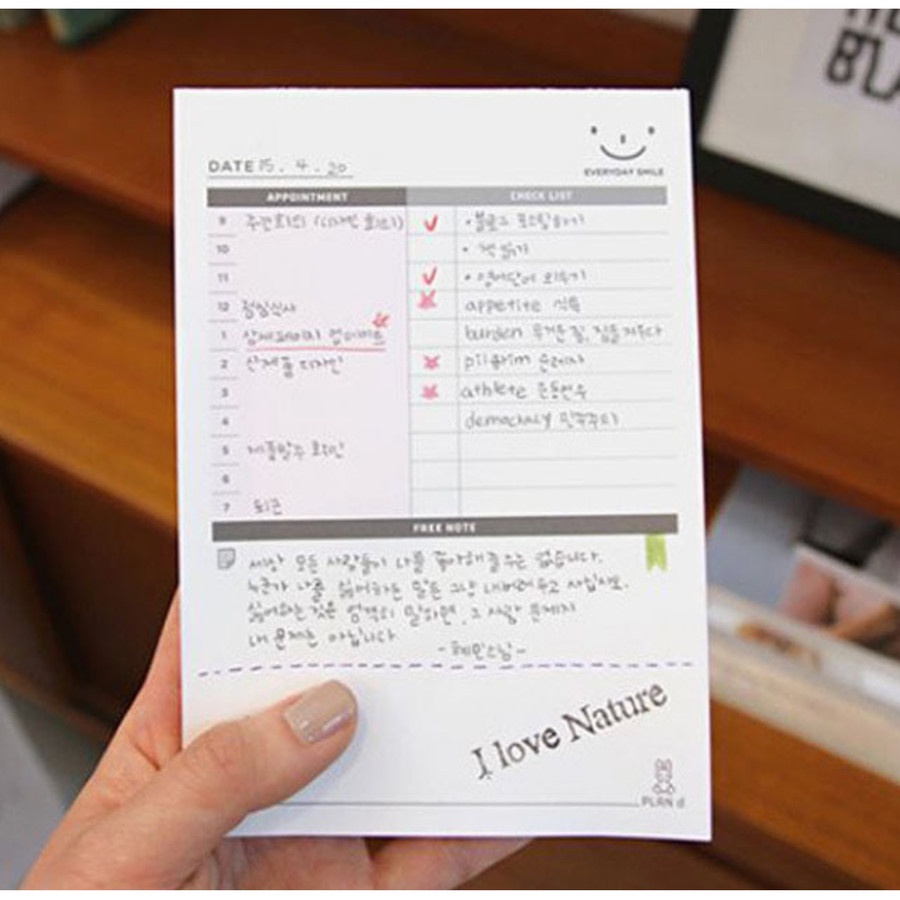 DATE 15 . 4 . 20
EVERYDAY SMILE
APPOINTMENT CHECK LIST
9 주간회의 (디자인 회의) • 블로그 포스팅하기
10 • 책 읽기
11 • 영어단어 외우기
12 점심식사 appetite 식욕
1 상세페이지 업데이트 burden 무거운 짐, 짐을 지우다
2 신제품 디자인 pilgrim 순례자
3 athlete 운동선수
4 democracy 민주주의
5 제품발주 확인
6
7 퇴근
FREE NOTE
세상 모든 사람들이 나를 좋아해 줄 수는 없습니다.
누군가 나를 싫어하는 말은 그냥 내버려 두고 사십시오.
싫어하는 것은 엄격히 말하면, 그 사람 문제지
내 문제는 아닙니다
-혜민스님-
I love Nature
PLAN d